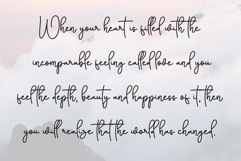 When your heart is filled with the
incomparable feeling called love and you
feel the depth, beauty and happiness of it, then
you will realize that the world has changed.